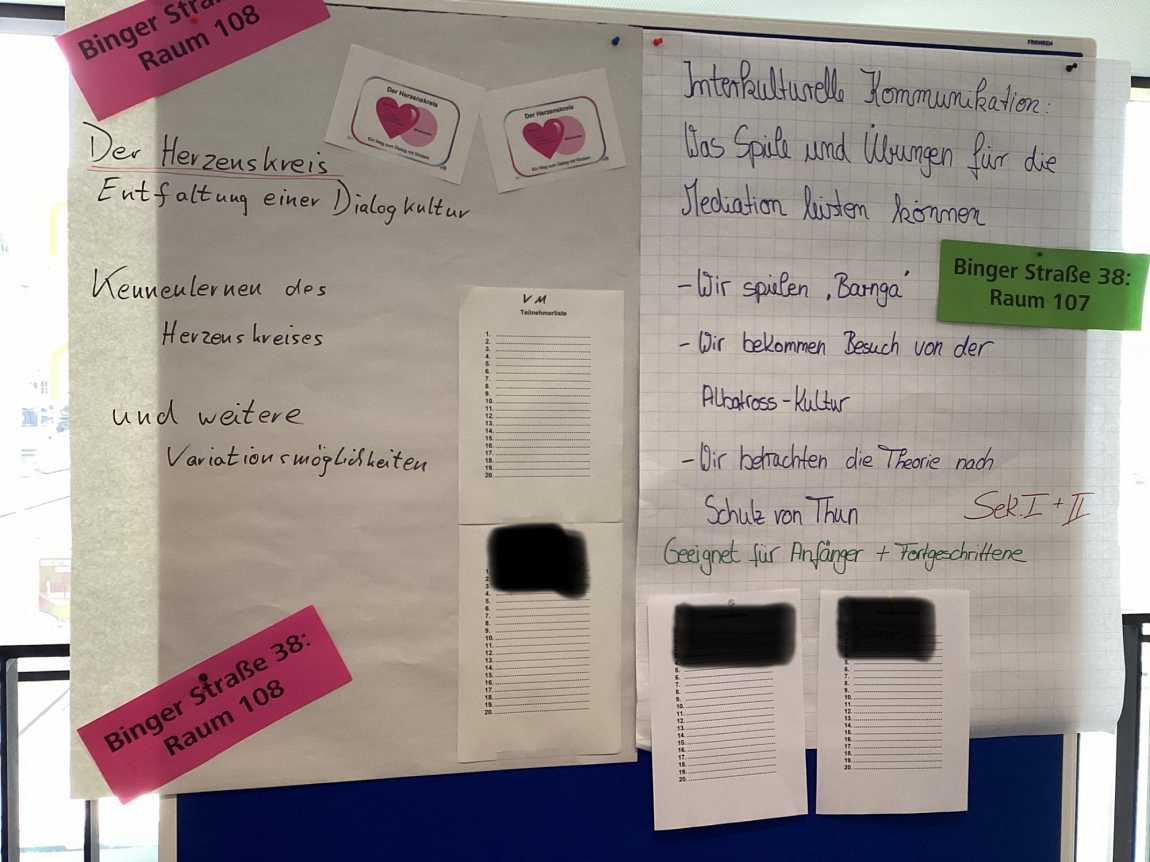 Binger Straße
Raum 108
Der Herzenskreis
Der Herzenskreis
Der Herzenskreis
Entfaltung einer Dialogkultur
Kennenlernen des
Herzenskreises
und weitere
Variationsmöglichkeiten
VM
Teilnehmerliste
1.
2.
3.
4.
5.
6.
7.
8.
9.
10.
11.
12.
13.
14.
15.
16.
17.
18.
19.
20.
1.
2.
3.
4.
5.
6.
7.
8.
9.
10.
11.
12.
13.
14.
15.
16.
17.
18.
19.
20.
Binger Straße 38:
Raum 108
Interkulturelle Kommunikation:
Was Spiele und Übungen für die
Mediation leisten können
- Wir spielen ‚Barnga'
Binger Straße 38:
Raum 107
- Wir bekommen Besuch von der
Albatross-Kultur
- Wir betrachten die Theorie nach
Schulz von Thun
Sek. I + II
Geeignet für Anfänger + Fortgeschrittene
5.
6.
7.
8.
9.
10.
11.
12.
13.
14.
15.
16.
17.
18.
19.
20.
5.
6.
7.
8.
9.
10.
11.
12.
13.
14.
15.
16.
17.
18.
19.
20.